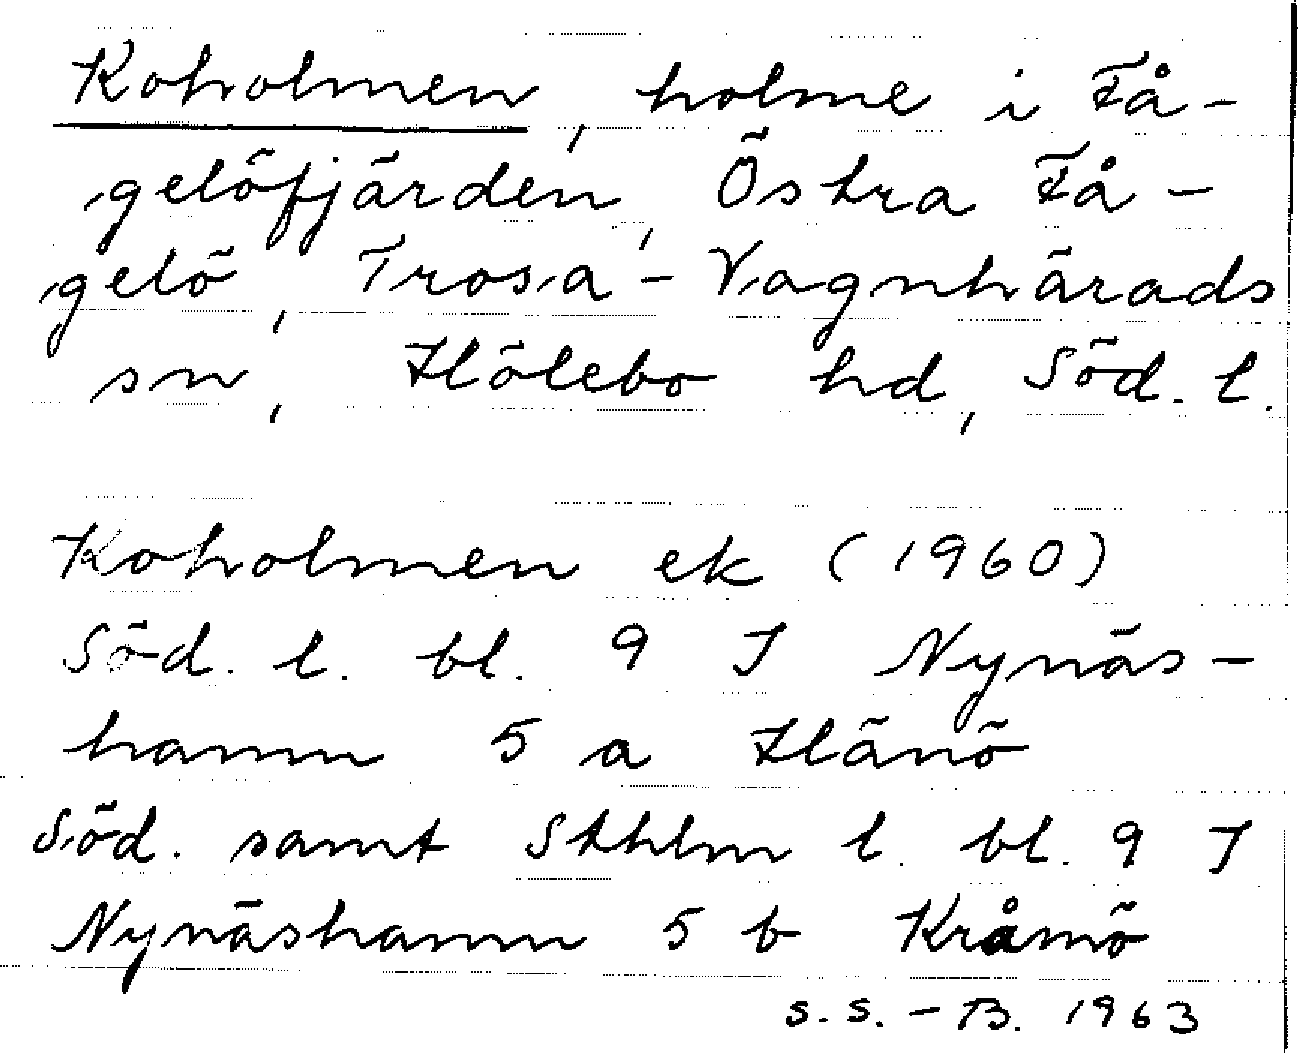 Koholmen, holme i Få-
gelöfjärden, Östra Få-
gelö, Trosa-Vagnhärads
sn, Hölebo hd, Söd. l.
Koholmen ek (1960)
Söd. l. bl. 9 I Nynäs-
hamn 5 a Hånö
Söd. samt Sthlm l. bl. 9 I
Nynäshamn 5 b Kråmö
S.S.-B. 1963